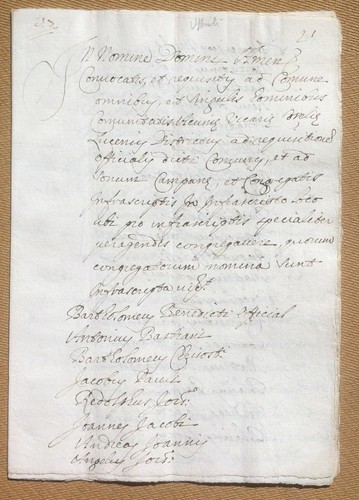 212
21
In Nomine Domine Amen
Convocatis, et requisitis ad Comune
omnibus, et singulis hominibus
Comunitatis
Lucensis Districtus ad requisitionem
officialis dicti Comunis, et ad
sonum Campane, et Congregatis
infrascriptis in infrascripto loco
ubi pro infrascriptis specialiter
peragendis congregavere, quorum
congregatorum nomina sunt
infrascripta
Bartholomeus Benedicti official
Antonius Bastiani
Bartholomeus
Jacobus Pauli
Redolphus
Joannes Jacobi
Andreas Joannis
Angelus